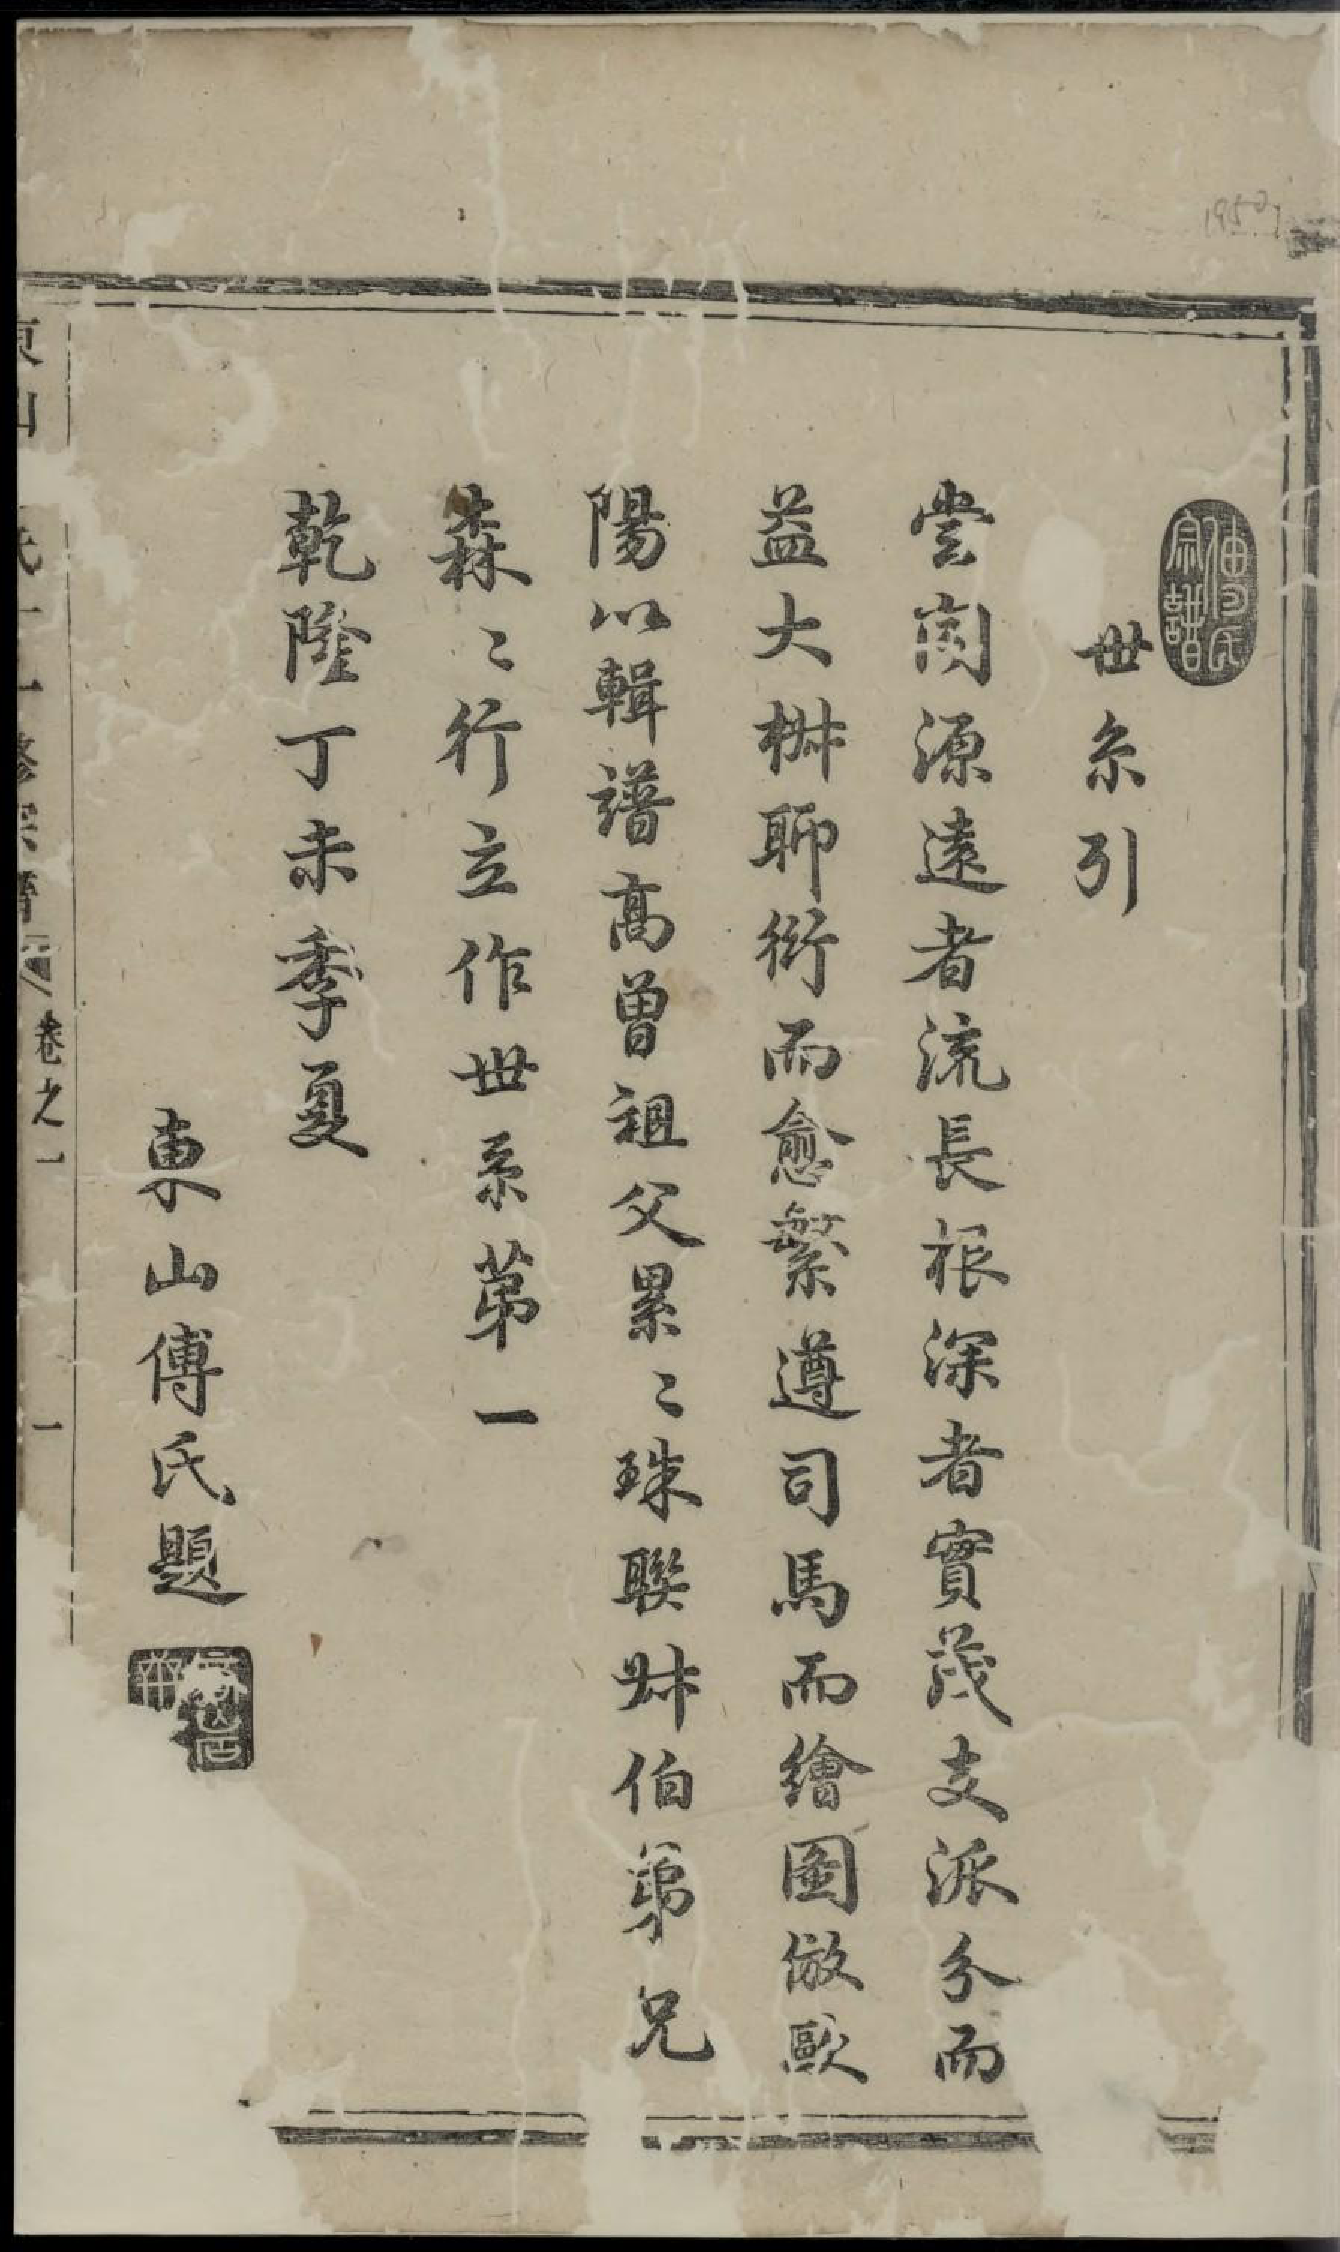 傅氏宗譜
世系引
嘗聞源遠者流長根深者實茂支派分而
益大椒聊衍而愈繁遵司馬而繪圖倣歐
陽以輯譜高曾祖父累〻珠聯叔伯弟兄
森〻行立作世系第一
乾隆丁未季夏
東山傅氏題
東山
氏
修宗譜
卷之一
一
1950